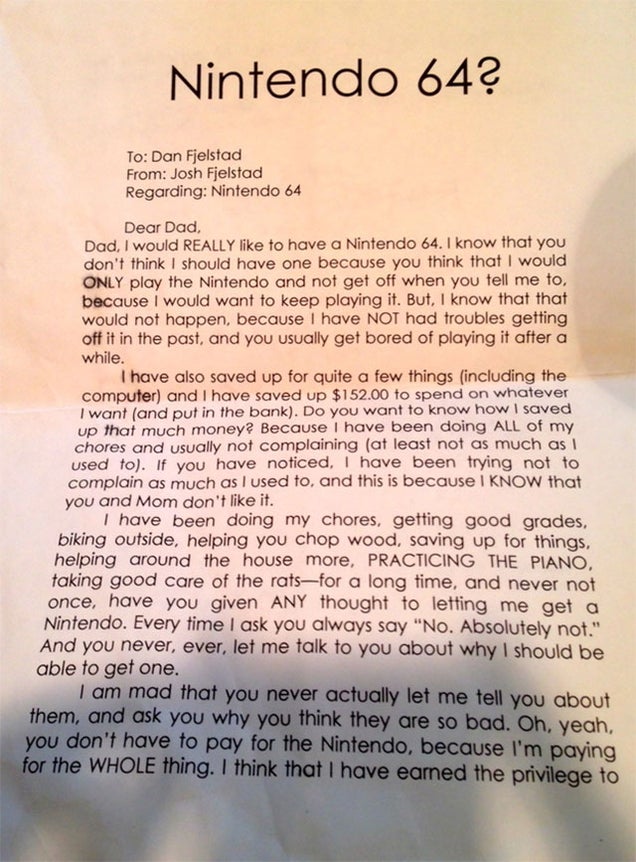 Nintendo 64?
To: Dan Fjelstad
From: Josh Fjelstad
Regarding: Nintendo 64
Dear Dad,
Dad, I would REALLY like to have a Nintendo 64. I know that you
don't think I should have one because you think that I would
ONLY play the Nintendo and not get off when you tell me to,
because I would want to keep playing it. But, I know that that
would not happen, because I have NOT had troubles getting
off it in the past, and you usually get bored of playing it after a
while.
I have also saved up for quite a few things (including the
computer) and I have saved up $152.00 to spend on whatever
I want (and put in the bank). Do you want to know how I saved
up that much money? Because I have been doing ALL of my
chores and usually not complaining (at least not as much as I
used to). If you have noticed, I have been trying not to
complain as much as I used to, and this is because I KNOW that
you and Mom don't like it.
I have been doing my chores, getting good grades,
biking outside, helping you chop wood, saving up for things,
helping around the house more, PRACTICING THE PIANO,
taking good care of the rats—for a long time, and never not
once, have you given ANY thought to letting me get a
Nintendo. Every time I ask you always say "No. Absolutely not."
And you never, ever, let me talk to you about why I should be
able to get one.
I am mad that you never actually let me tell you about
them, and ask you why you think they are so bad. Oh, yeah,
you don't have to pay for the Nintendo, because I'm paying
for the WHOLE thing. I think that I have earned the privilege to